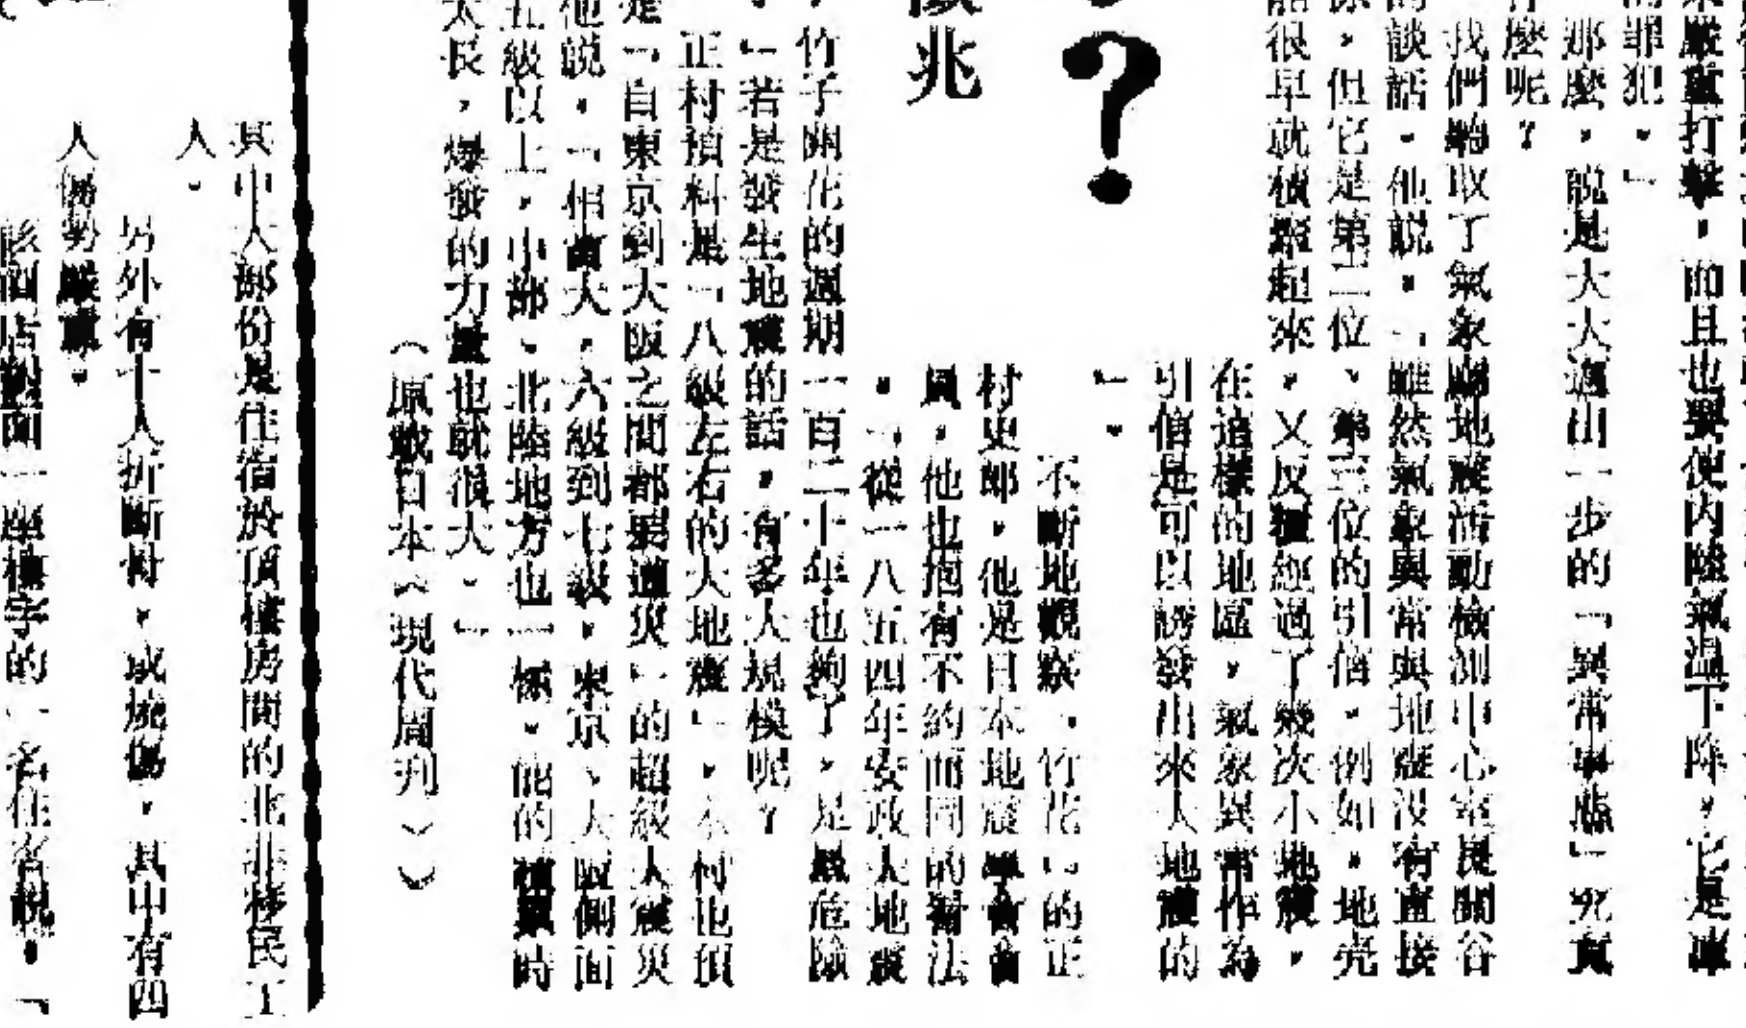 嚴重打擊，而且也要使內陸氣温下降，它是
的罪犯。」
那麼，說是大大邁出一步的「異常事態」究竟
什麼呢？
我們聽取了氣象廳地震活動檢測中心室長關谷
的談話。他說：「雖然氣象異常與地震沒有直接
係，但它是第二位、第三位的引信。例如，地壳
能很早就積聚起來，又反覆經過了幾次小地震，
在這樣的地區，氣象異常作為
引信是可以誘發出來大地震的
」。
不斷地觀察「竹花」的正
村史郎，他是日本地震學會會
員，他也抱有不約而同的看法
。「從一八五四年安政大地震
？
兆
，竹子開花的週期一百二十年也夠了，是最危險
。」若是發生地震的話，有多大規模呢？
正村預料是「八級左右的大地震」，木村也預
是「自東京到大阪之間都要遭災」的超級大震災
他說，「相當大，六級到七級，東京、大阪側面
五級以上，中部、北陸地方也一樣。能的積累時
太長，爆發的力量也就很大。」
（原載日本《現代周刋》）
其中大部份是住宿於頂樓房間的北非移民工
人。
另外有十人折斷骨，或燒傷，其中有四
人傷勢嚴重。
該酒店對面一座樓宇的一名住客說：「